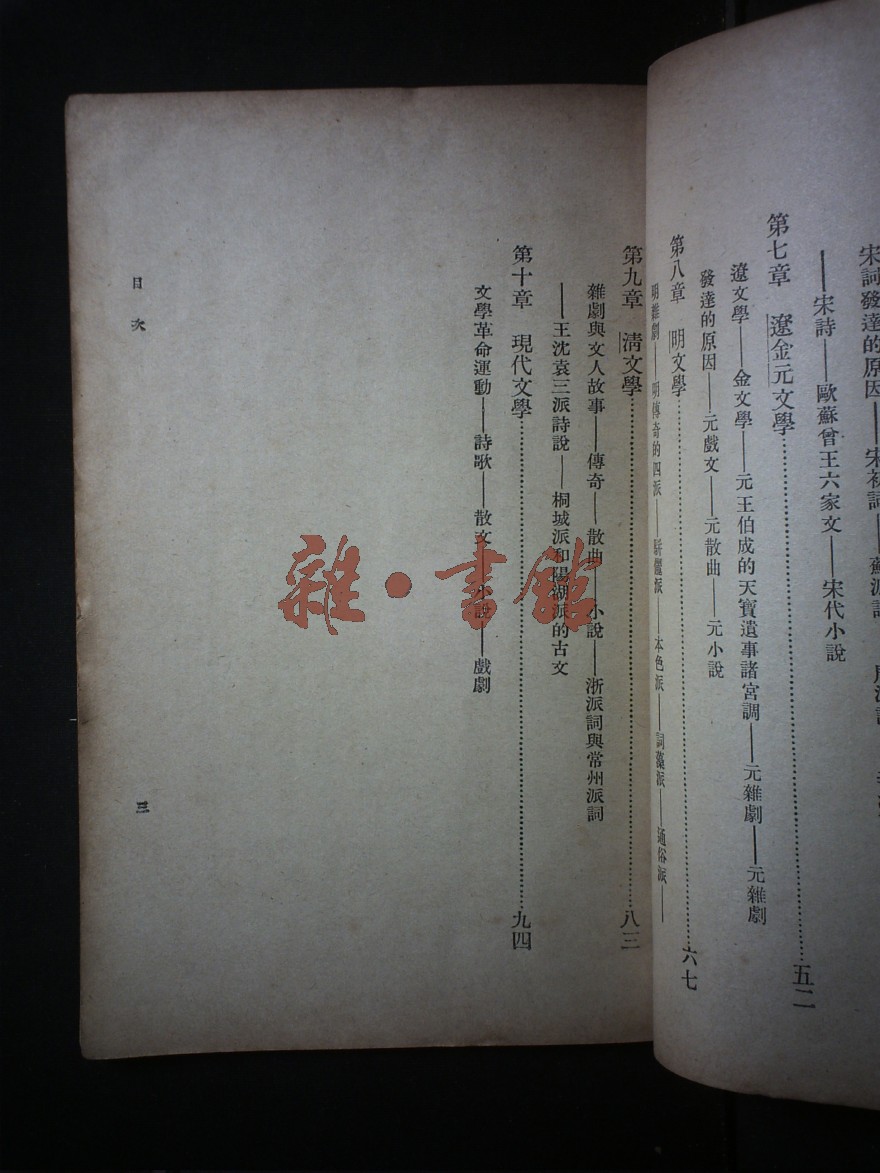 宋詞發達的原因——宋初詞——蘇派詞
——宋詩——歐蘇曾王六家文——宋代小說
第七章　遼金元文學……五二
遼文學——金文學——元王伯成的天寶遺事諸宮調——元雜劇——元雜劇
發達的原因——元戲文——元散曲——元小說
第八章　明文學……六七
明雜劇——明傳奇的四派——駢儷派——本色派——詞藻派——通俗派——
第九章　清文學……八三
雜劇與文人故事——傳奇——散曲——小說——浙派詞與常州派詞
——王沈袁三派詩說——桐城派和陽湖派的古文
第十章　現代文學……九四
文學革命運動——詩歌——散文——小說——戲劇
目次
三
雜·書館